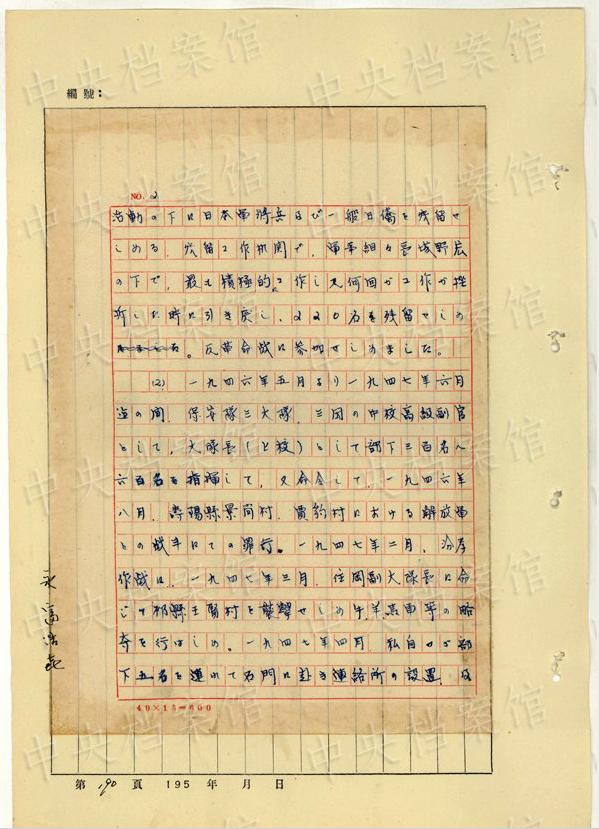 編號：
NO. 2
活動の下に日本軍将兵及び一般日僑を残留せ
しめる、残留工作机関で、軍事組々長城野宏
の下で、最も積極的に作し又何回か工作が挫
折した時に引き戻し、220名を残留せしめ
。反革命战に参加せしめました。
(2) 一九四六年五月より一九四七年六月
迄の間、保安隊三大隊、三団の中校高級副官
として、大隊長（上校）として部下三百名〜
六百名を指揮して、又命令して、一九四六年
八月、壽陽縣景尚村、賈豹村における解放軍
との战斗にての罪行。一九四七年二月、汾孝
作战に、一九四七年三月、住岡副大隊長に命
じ祁縣王賈村を襲撃せしめ牛羊馬車等の略
奪を行はしめ。一九四七年四月、私自ら部
下五名を連れて石門に赴き連絡所の設置、及
40×15=600
永富浩喜
第 190 頁 195 年 月 日
中央档案馆